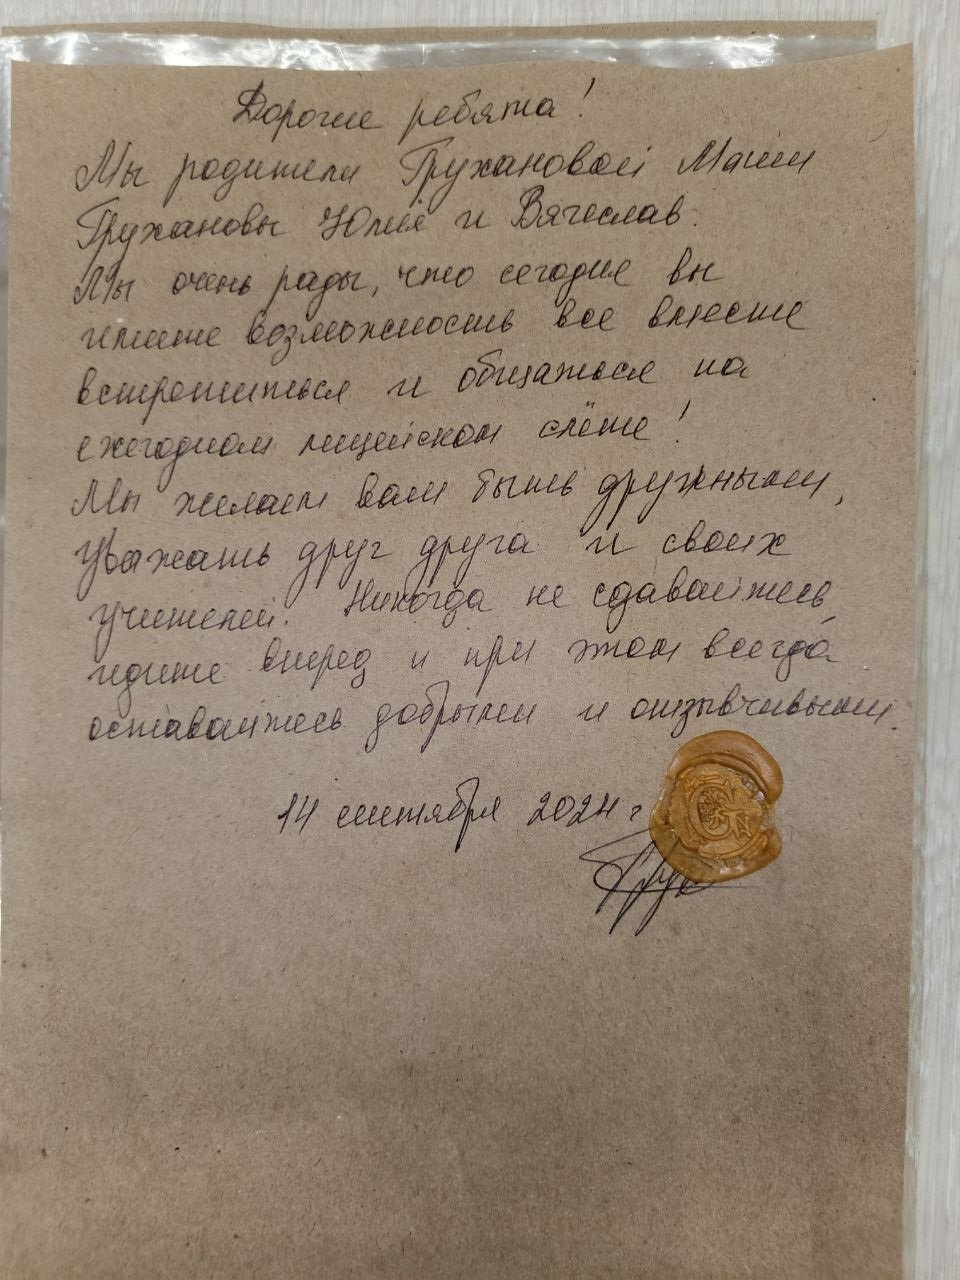 Дорогие ребята!
Мы родители Гружановой Маши
Гружановы Юлия и Вячеслав.
Мы очень рады, что сегодня вы
имеете возможность все вместе
встретиться и общаться на
ежегодном лицейском слёте!
Мы желаем вам быть дружными,
уважать друг друга и своих
учителей. Никогда не сдавайтесь,
идите вперед и при этом всегда
оставайтесь добрыми и отзывчивыми.
14 сентября 2024 г